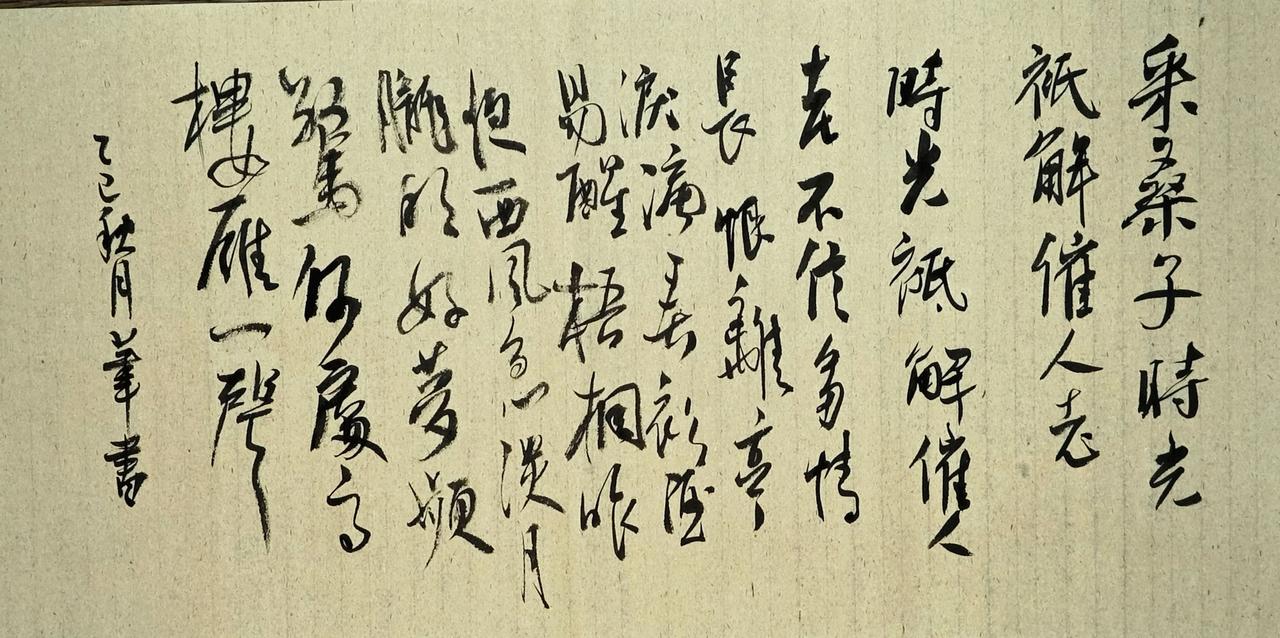 采桑子時光
祇解催人老
時光祇解催人
老不信多情
長恨離亭
淚滴春衫酒
易醒梧桐昨
夜西風急淡月
朧明好夢頻
驚何處高
樓雁一聲
乙巳秋月華書